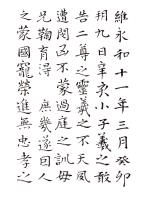 維永和十一年三月癸卯
朔九日辛亥小子羲之敢
告二尊之靈羲之不天夙
遭閔凶不蒙過庭之訓母
兄鞠育得庶幾遂因人
乏蒙國寵榮進無忠孝之